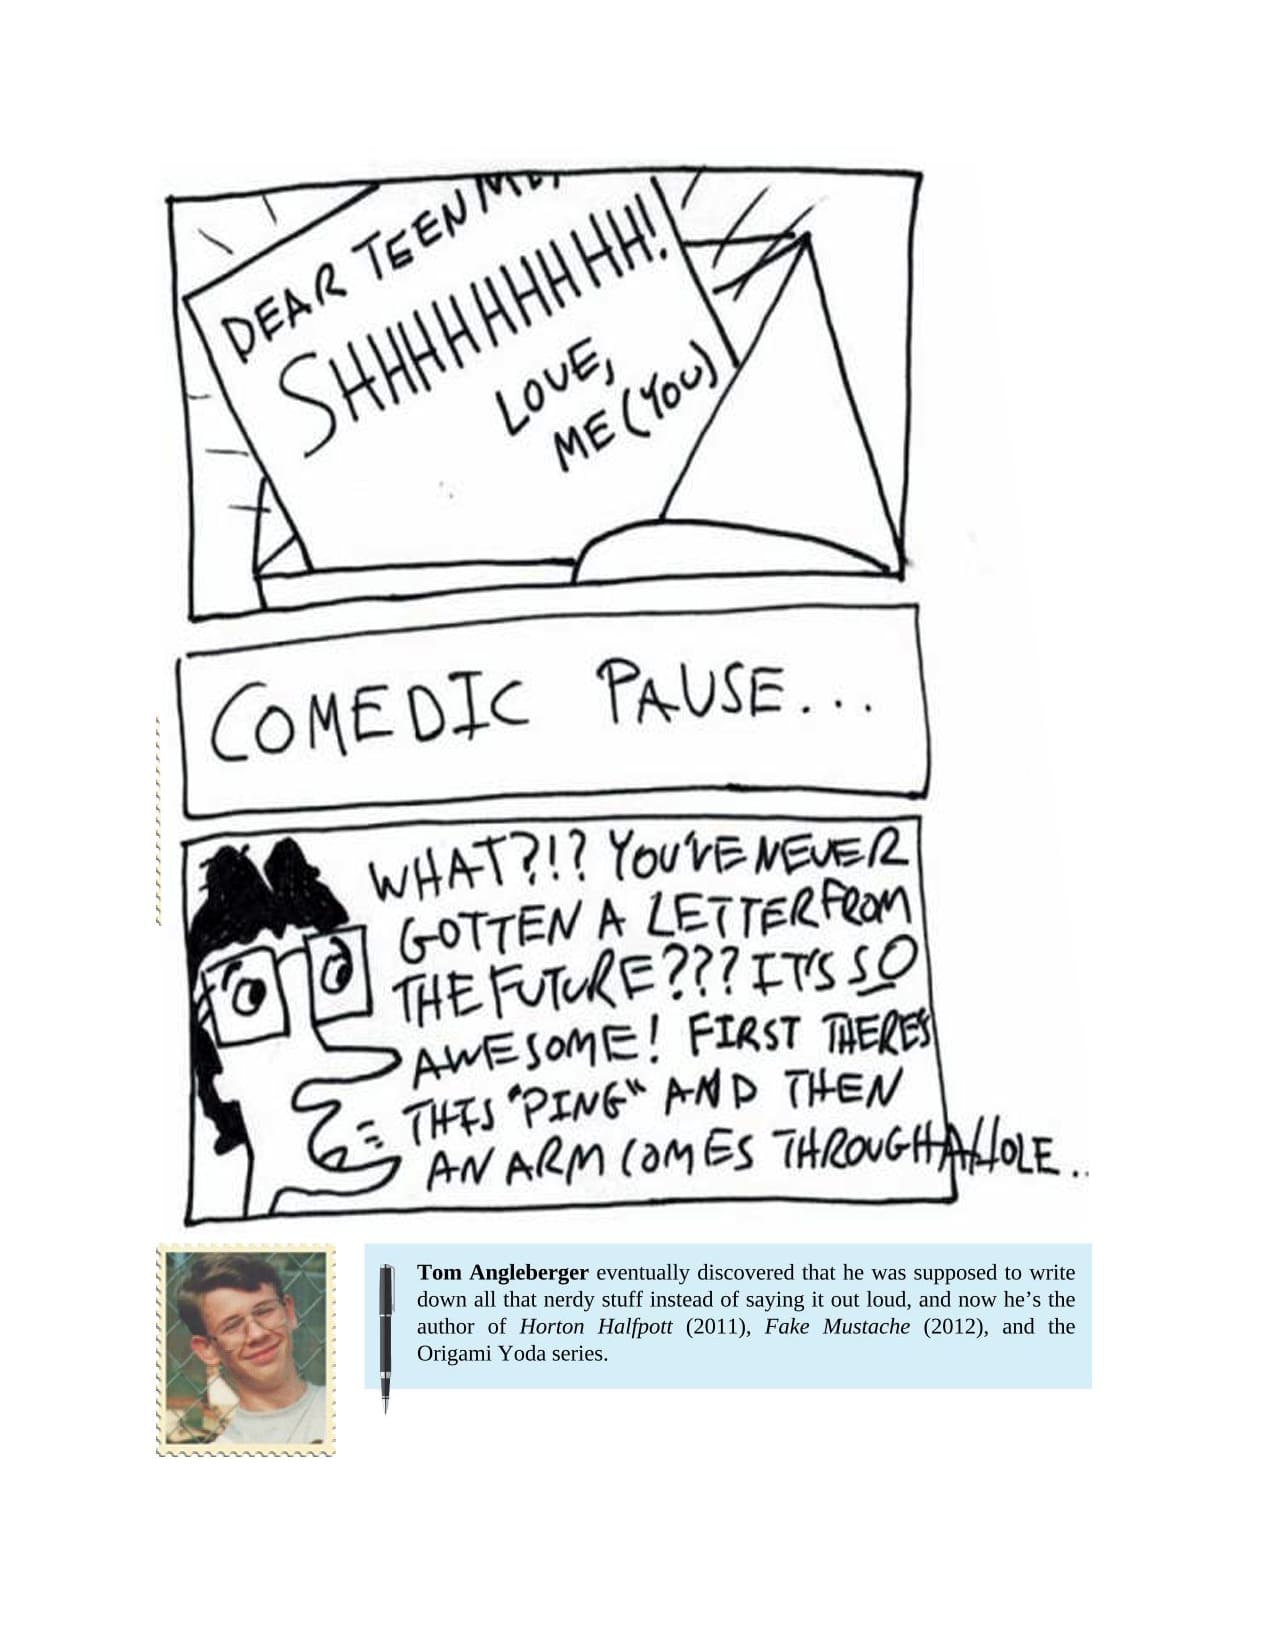 DEAR TEEN ME,
SHHHHHHHHH!
LOVE,
ME (YOU)
COMEDIC PAUSE...
WHAT?!? YOU'VE NEVER
GOTTEN A LETTER FROM
THE FUTURE??? IT'S SO
AWESOME! FIRST THERE'S
THIS "PING" AND THEN
AN ARM COMES THROUGH A HOLE..
Tom Angleberger eventually discovered that he was supposed to write
down all that nerdy stuff instead of saying it out loud, and now he’s the
author of Horton Halfpott (2011), Fake Mustache (2012), and the
Origami Yoda series.